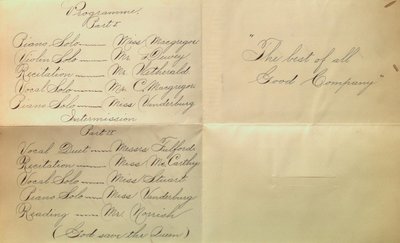 Programme.
Part I
Piano Solo —— Miss Macgregor
Violin Solo —— Mr. Dewey
Recitation —— Mr. Watherald
Vocal Solo —— Mr. C. Macgregor
Piano Solo —— Miss Vanderburg
Intermission
Part II
Vocal Duet —— Messrs Fulford
Recitation —— Miss McCarthy
Vocal Solo —— Miss Stuart
Piano Solo —— Miss Vanderburg
Reading —— Mr. Norrish
(God save the Queen)
"The best of all
Good Company"